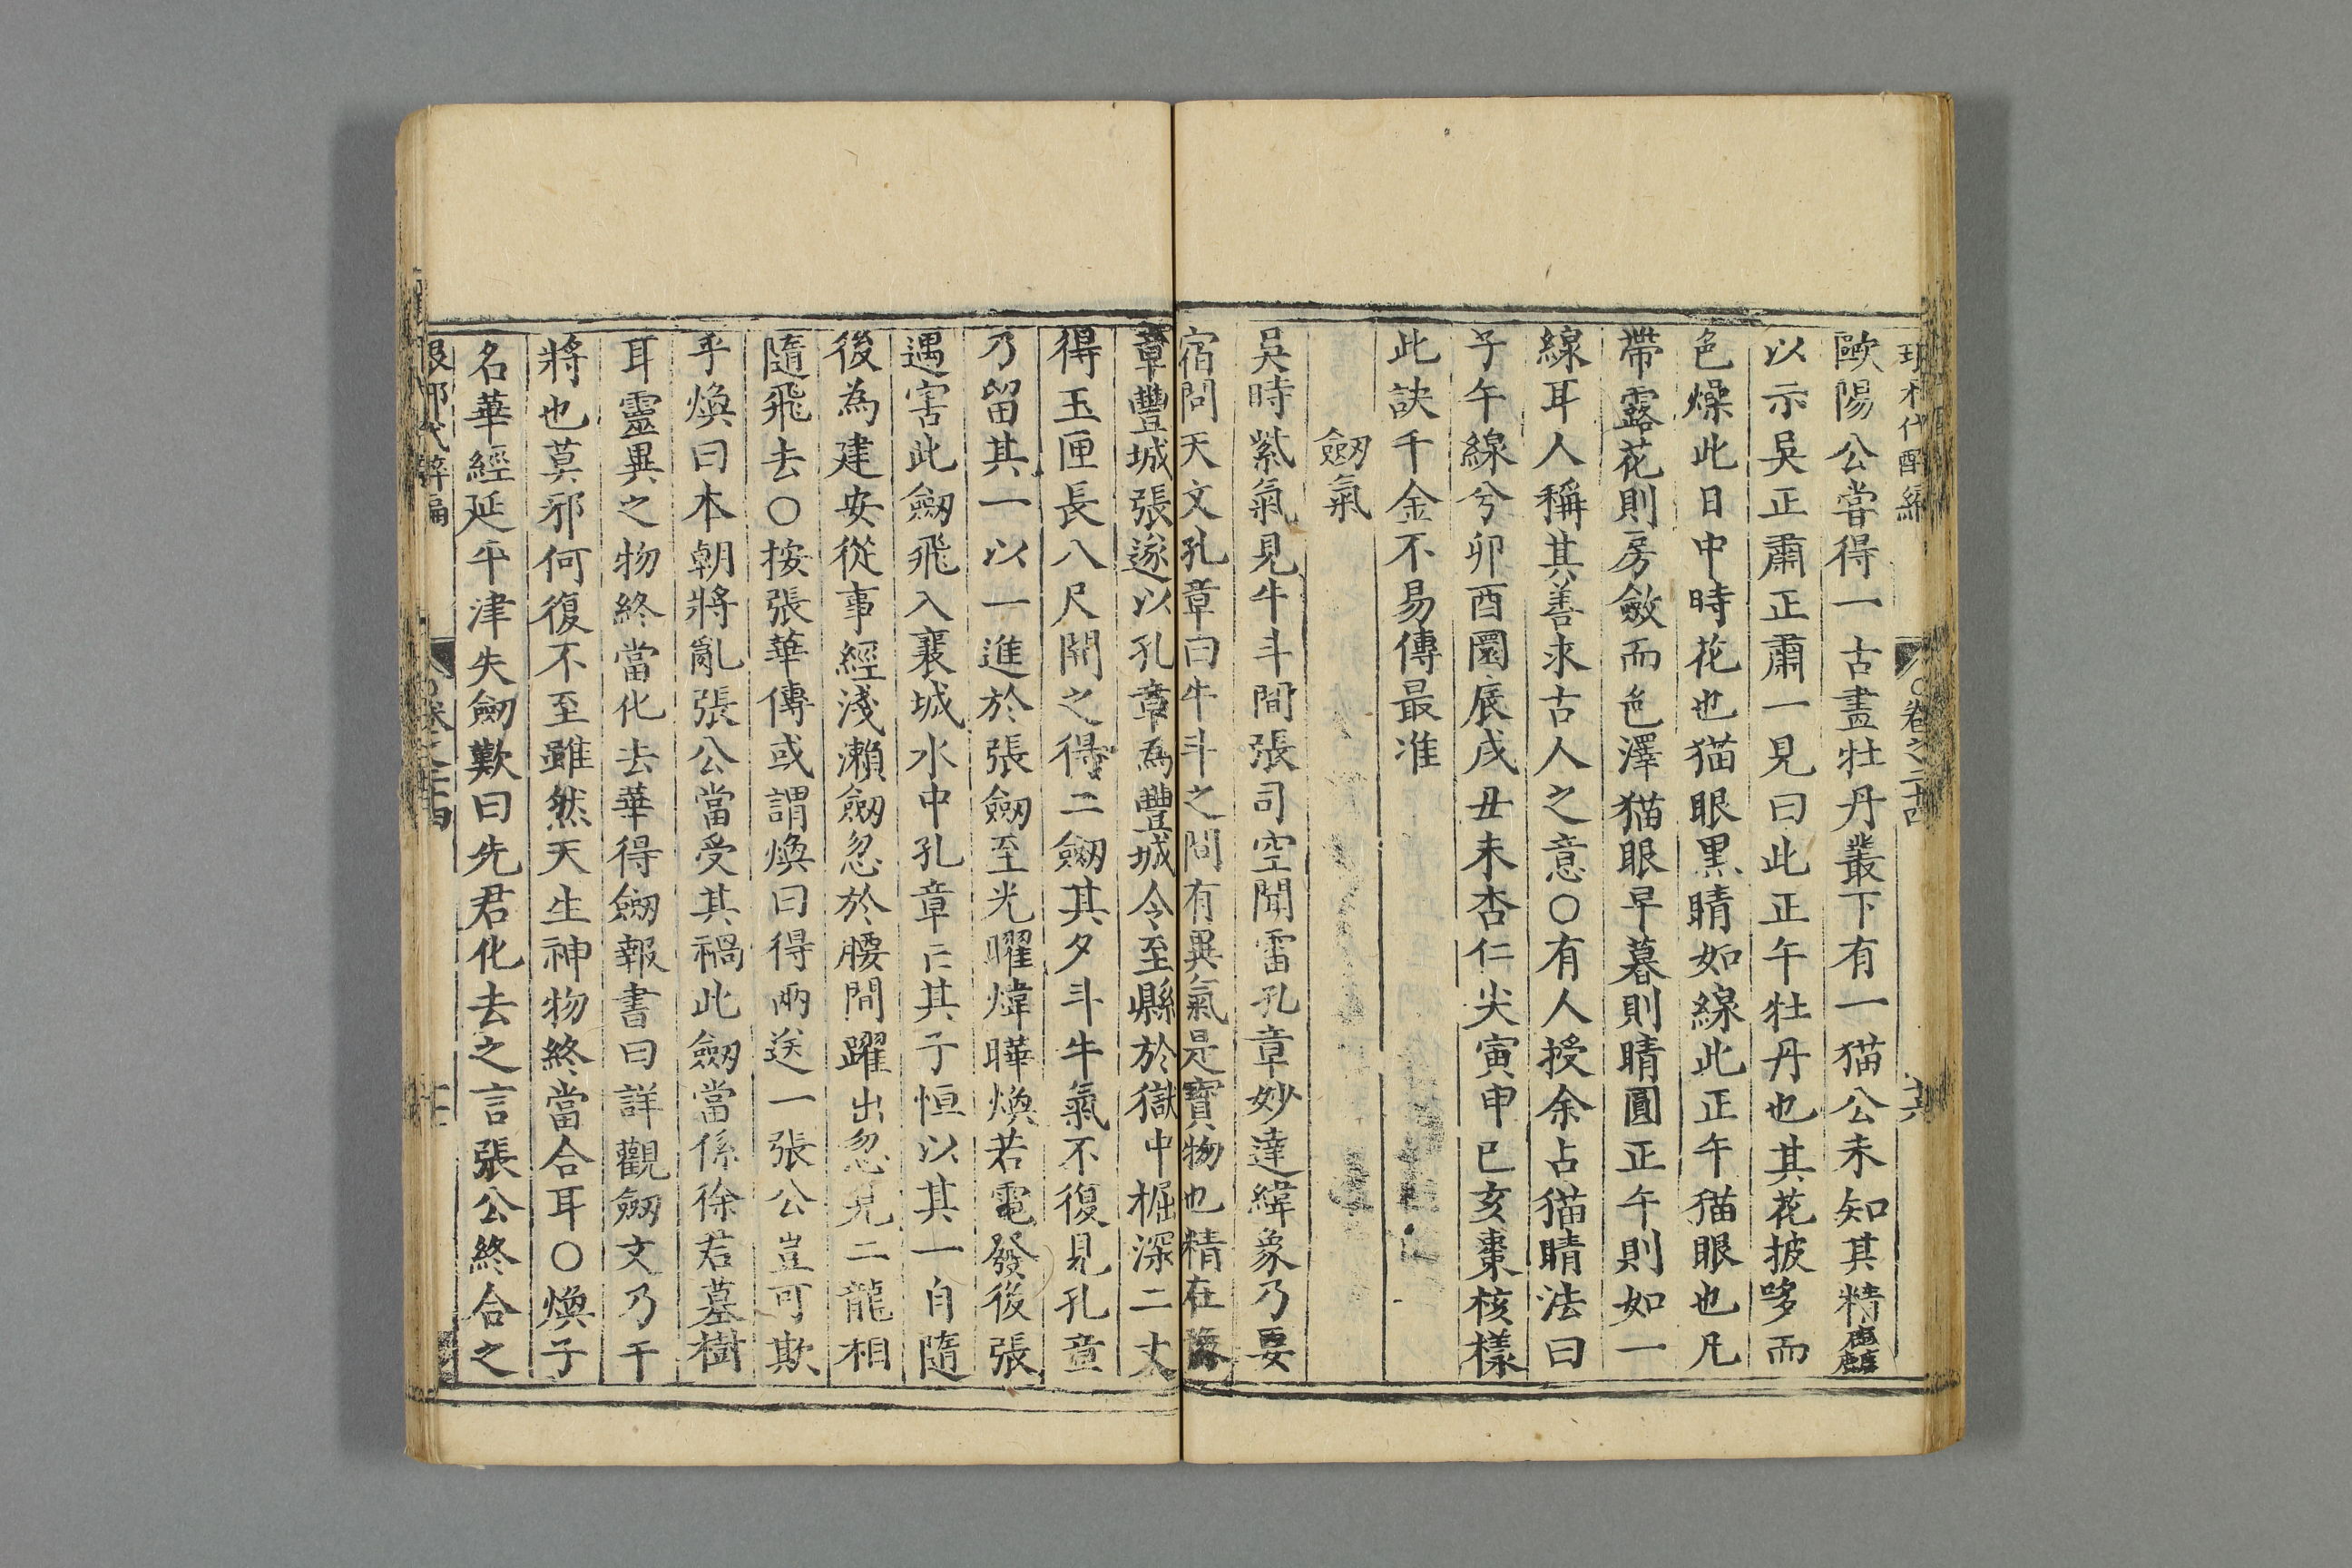 卷之二十四
歐陽公嘗得一古畫牡丹叢下有一猫公未知其精麄
以示吳正肅正肅一見曰此正午牡丹也其花披哆而
色燥此日中時花也猫眼黒睛如線此正午猫眼也凡
帶露花則房斂而色澤猫眼早暮則睛圓正午則如一
線耳人稱其善求古人之意○有人授余占猫睛法曰
子午線兮卯酉圜辰戌丑未杏仁尖寅申巳亥棗核樣
此訣千金不易傳最准
劒氣
吳時紫氣見牛斗間張司空聞雷孔章妙達緯象乃要
宿問天文孔章曰牛斗之間有異氣是寳物也精在豫
章豐城張遂以孔章為豐城令至縣於獄中掘深二丈
得玉匣長八尺開之得二劒其夕斗牛氣不復見孔章
乃留其一以一進於張劒至光曜煒曄煥若電發後張
遇害此劒飛入襄城水中孔章亡其子恒以其一自隨
後為建安從事經淺瀨劒忽於腰間躍出忽見二龍相
隨飛去○按張華傳或謂煥曰得兩送一張公豈可欺
乎煥曰本朝將亂張公當受其禍此劒當係徐君墓樹
耳靈異之物終當化去華得劒報書曰詳觀劒文乃干
將也莫邪何復不至雖然天生神物終當合耳○煥子
名華經延平津失劒歎曰先君化去之言張公終合之